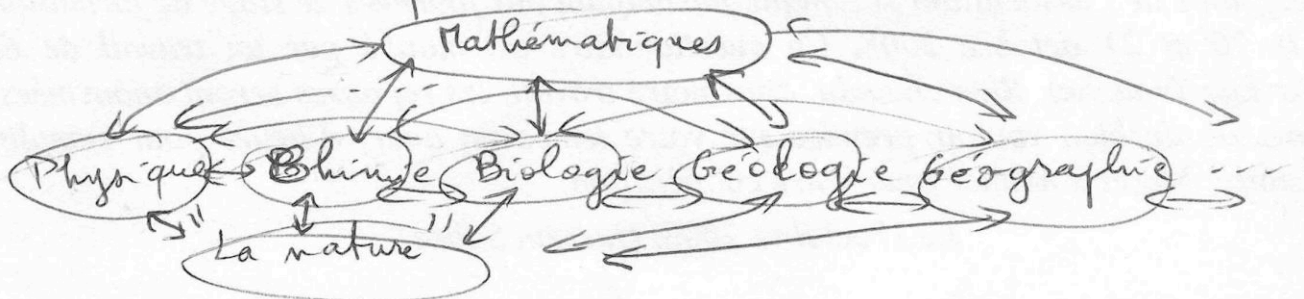 Mathématiques
Physique Chimie Biologie Géologie Géographie
"La nature"